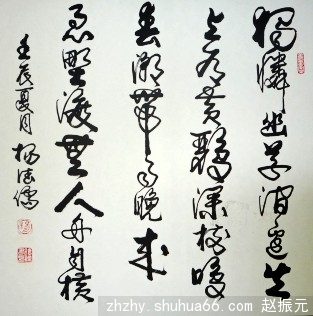 獨憐幽草澗邊生
上有黃鸝深樹鳴
春潮帶雨晚來
急野渡無人舟自橫
壬辰夏月 楊 儒
zhzhy.shuhua66.com 赵振元